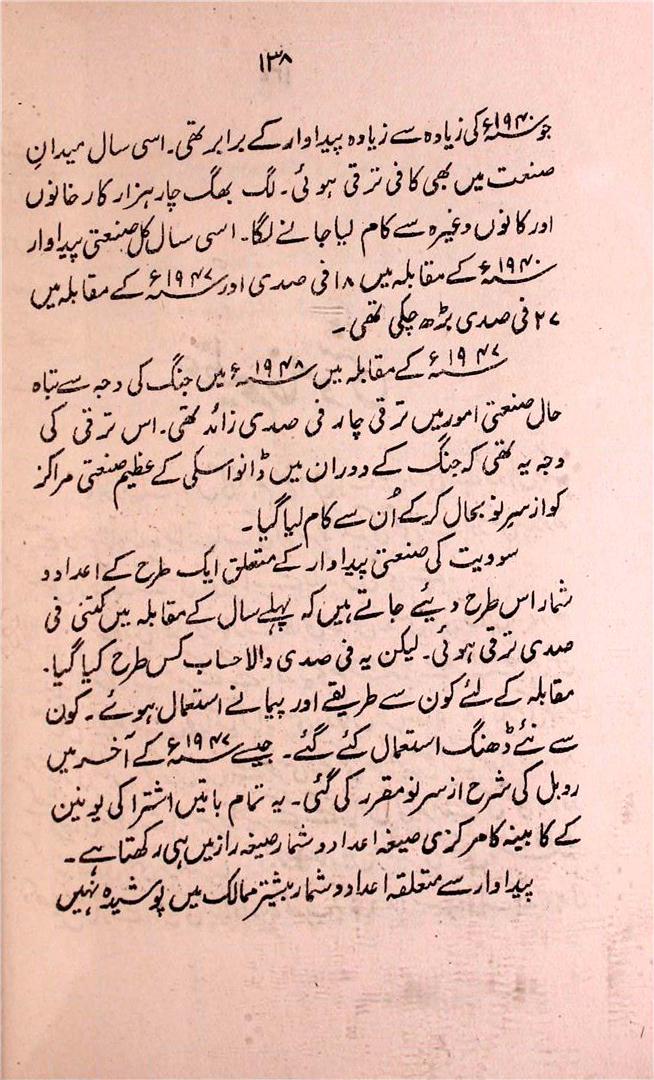 ۱۳۸
جو ۱۹۴۰ء کی زیادہ سے زیادہ پیداوار کے برابر تھی۔ اسی سال میدانِ
صنعت میں بھی کافی ترقی ہوئی۔ لگ بھگ چار ہزار کارخانوں
اور کانوں وغیرہ سے کام لیا جانے لگا۔ اسی سال کل صنعتی پیداوار
۱۹۴۰ء کے مقابلہ میں ۱۸ فی صدی اور ۱۹۴۷ء کے مقابلہ میں
۲۷ فی صدی بڑھ چکی تھی۔
۱۹۴۷ء کے مقابلہ میں ۱۹۴۸ء میں جنگ کی وجہ سے تباہ
حال صنعتی امور میں ترقی چار فی صدی زائد تھی۔ اس ترقی کی
وجہ یہ تھی کہ جنگ کے دوران میں ڈانواسکی کے عظیم صنعتی مراکز
کو از سرِ نو بحال کر کے اُن سے کام لیا گیا۔
سوویت کی صنعتی پیداوار کے متعلق ایک طرح کے اعداد و
شمار اس طرح دیئے جاتے ہیں کہ پہلے سال کے مقابلہ میں کتنی فی
صدی ترقی ہوئی۔ لیکن یہ فی صدی والا حساب کس طرح کیا گیا۔
مقابلہ کے لئے کون سے طریقے اور پیمانے استعمال ہوئے۔ کون
سے نئے ڈھنگ استعمال کئے گئے۔ جیسے ۱۹۴۷ء کے آخر میں
روبل کی شرح از سر نو مقرر کی گئی۔ یہ تمام باتیں اشتراکی یونین
کے کابینہ کا مرکزی صیغہ اعداد و شمار صیغہ راز میں ہی رکھتا ہے۔
پیداوار سے متعلقہ اعداد و شمار بیشتر ممالک میں پوشیدہ نہیں